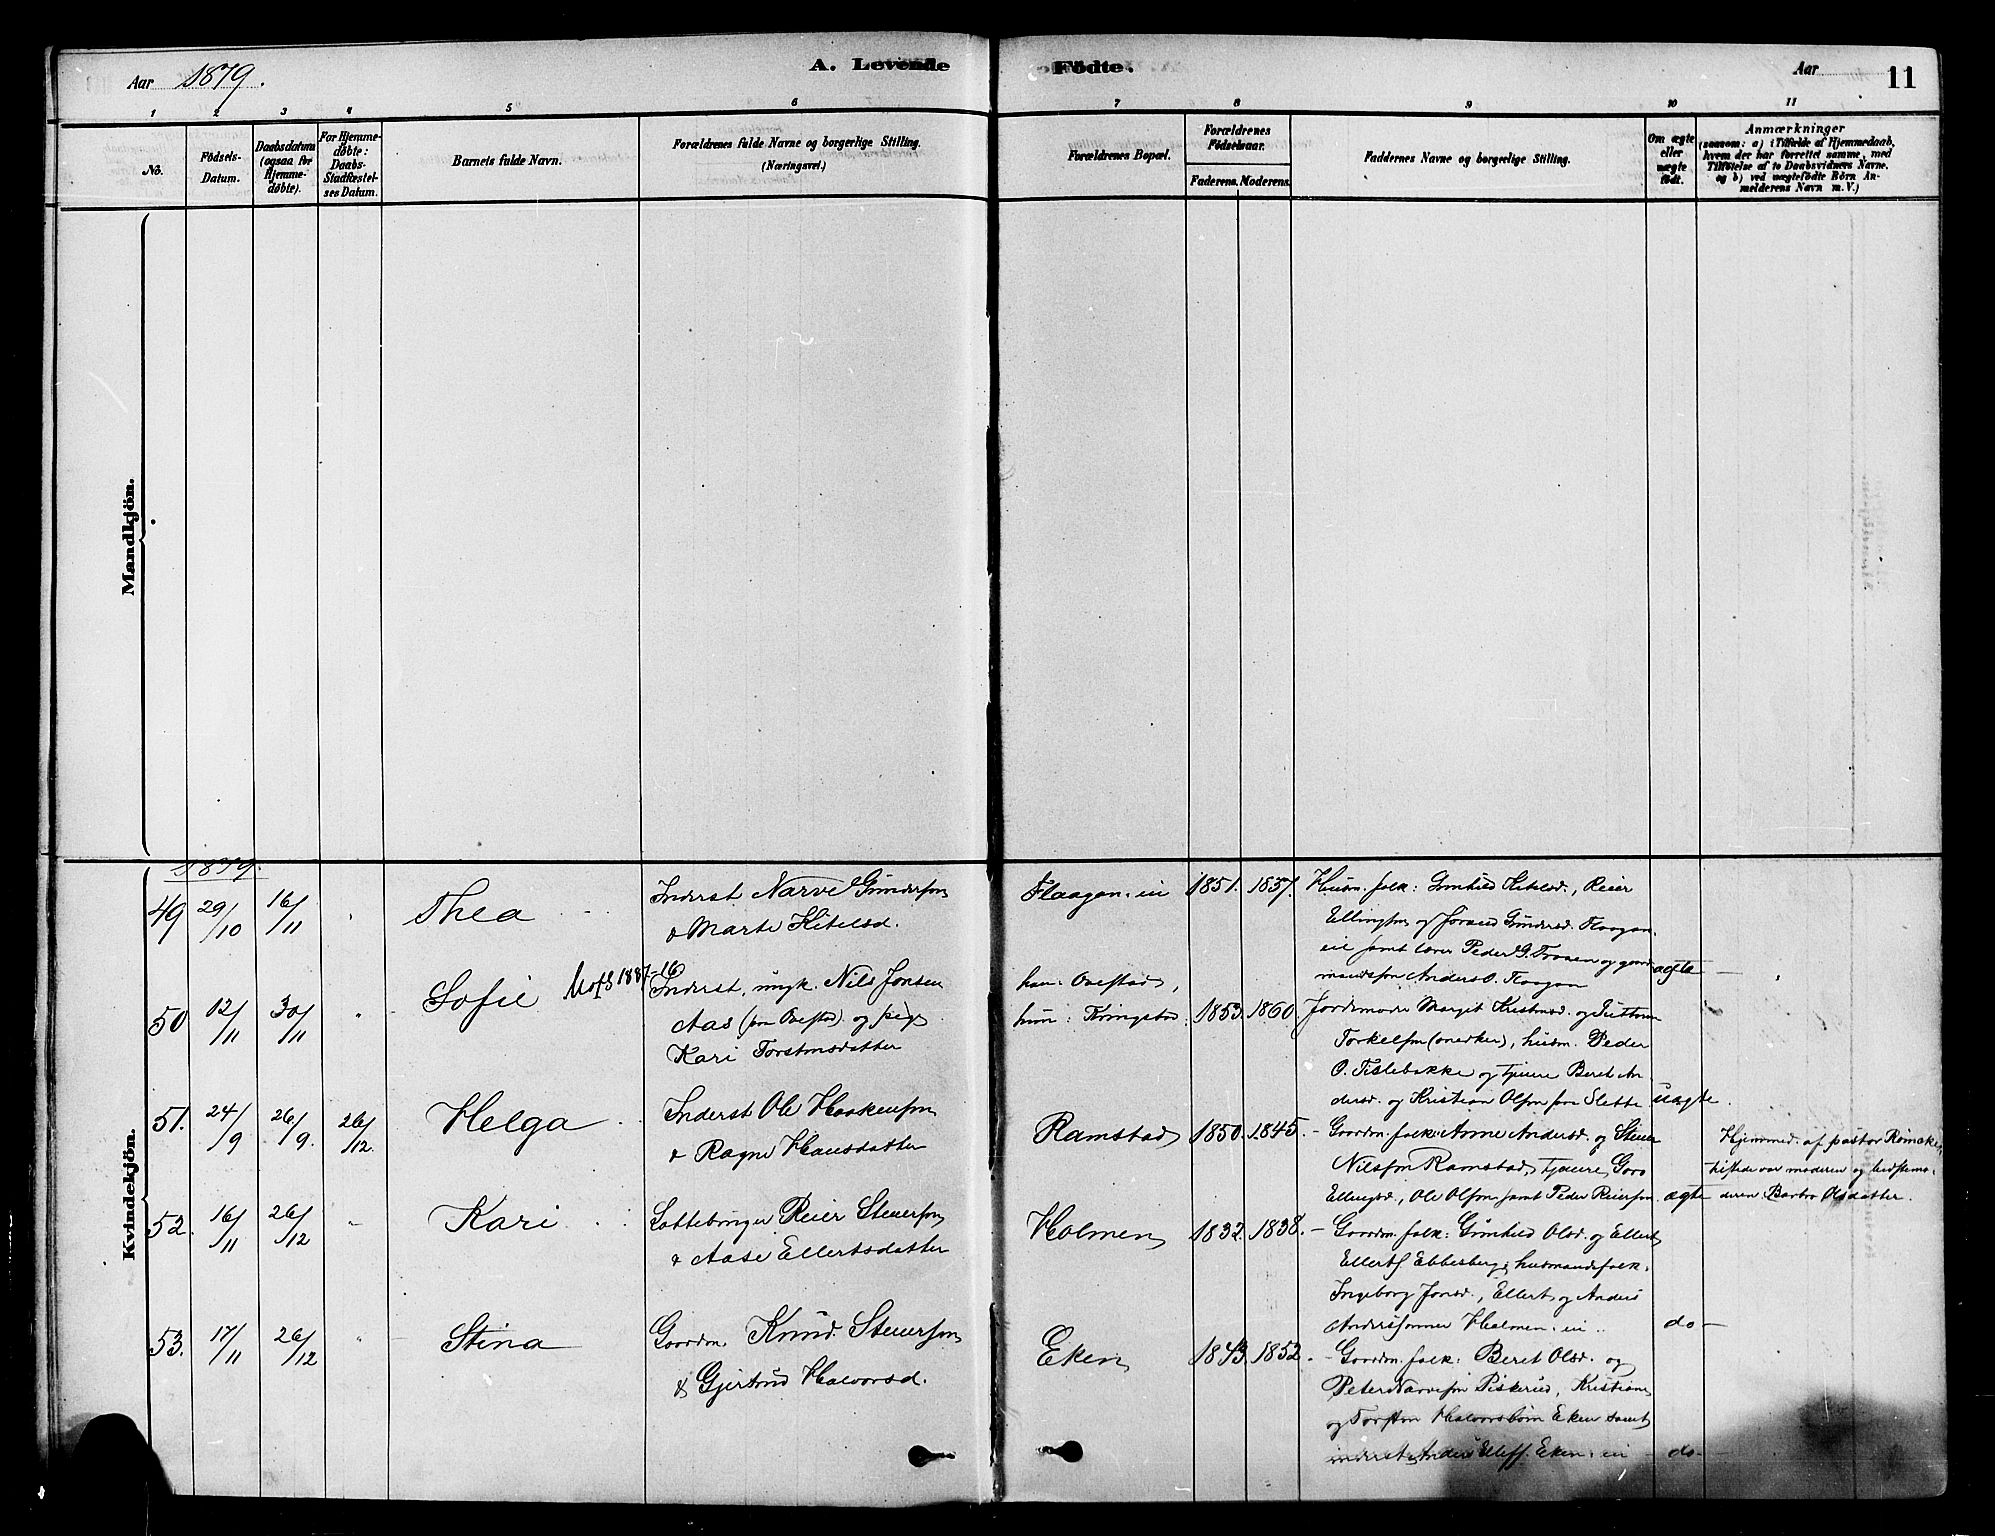 Aar 1879.
A. Levende Födte.
Aar
11
1 2 3 4 5 6 7 8 9 10 11
No.
Födsels-Datum.
Daabsdatum (ogsaa for Hjemme-døbte).
For Hjemme-døbte: Daabs-Stadfæstel-ses Datum.
Barnets fulde Navn.
Forældrenes fulde Navne og borgerlige Stilling.
(Næringsvei.)
Forældrenes Bopæl.
Forældrenes Födselsaar.
Faderens. Moderens.
Faddernes Navne og borgerlige Stilling.
Om ægte eller uægte födt.
Anmærkninger
(saasom: a) i Tilfælde af Hjemmedaab,
hvem der har forrettet samme, med
Tilföielse af to Daabsvidners Navne,
og b) ved uægtefödte Börn An-
melderens Navn m.V.)
Mandkjön.
Kvindekjön.
1879.
49 29/10 16/11 Thea
Inderst Narve Gundersen
& Marte Kitelsd.
Flaagan. ei 1851. 1857.
Husm. folk: Gunhild Kitelsd., Reier
Ellingsen og Gundersd. Flaagan.
eie samt lærer Peder G. og gaard
mandssøn Anders O. Flaagan ægte
50 12/11 30/11 Sofie
Inderst, ungk. Nils Jonsen
Aas (fra Ovestad) og pige
Kari Torstensdatter
han: Ovestad,
hun: Kringstad: 1853. 1860.
Jordemoder Marget Kristensd. og
Torkelsen (snedker), husm. Peder
O. Tislebakke og tjener Beret An
dersd. og Kristian Olsen fra Slette uægte.
51. 24/9 26/9. 26/12. Helga
Inderst Ole Haakensen
& Ragne Hansdatter
Ramstad 1850. 1845.
Gaardm. folk: Anne Andersd. og Stener
Nilssen Ramstad, tjenere Goro
Ellingsd., Ole Olsen samt Peder Reiersen. ægte
Hjemmed. af pastor
tilstede var moderen og bedstemo-
deren Barbro Olsdatter.
52. 16/11 26/12 Kari
Sattebruger Reier Stenersen
& Aase Ellertsdatter
Holmen 1832. 1838.
Gaardm. folk: Gunhild Olsd. og Ellert
Ellerts. Ebbesberg, husmandsfolk:
Ingeborg Jonsd., Ellert og Anders
Anderssønner Holmen. ei. do
53. 17/11 26/12 Stina
Gaardm. Knud Stenersen
& Gjertrud Halvorsd.
Eken 1843. 1852.
Gaardm. folk: Beret Olsd. og
Peter Narvesen Piskerud, Kristiane
og Torsten Halvorsbørn Eken samt
inderst Anders Eken. ei do